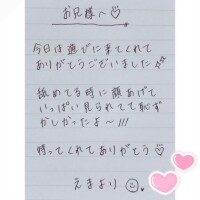 お兄様～♡
今日は遊びに来てくれて
ありがとうございました
舐めてる時に顔あげて
いっぱい見られてて恥ず
かしかったよ～!!!
待っててくれてありがとう♡
えまより